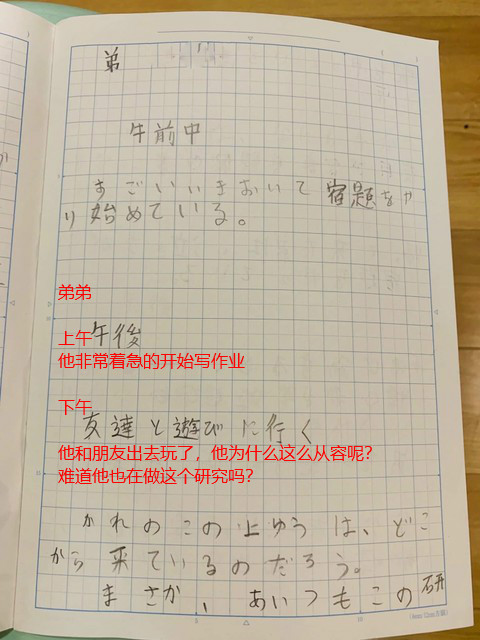 弟
午前中
すごいいきおいで宿題をや
り始めている。
弟弟
上午
午後
他非常着急的开始写作业
下午
友達と遊びに行く
他和朋友出去玩了，他为什么这么从容呢？
难道他也在做这个研究吗？
かれのこの上ゆうは、どこ
から来ているのだろう。
まさか、あいつもこの研